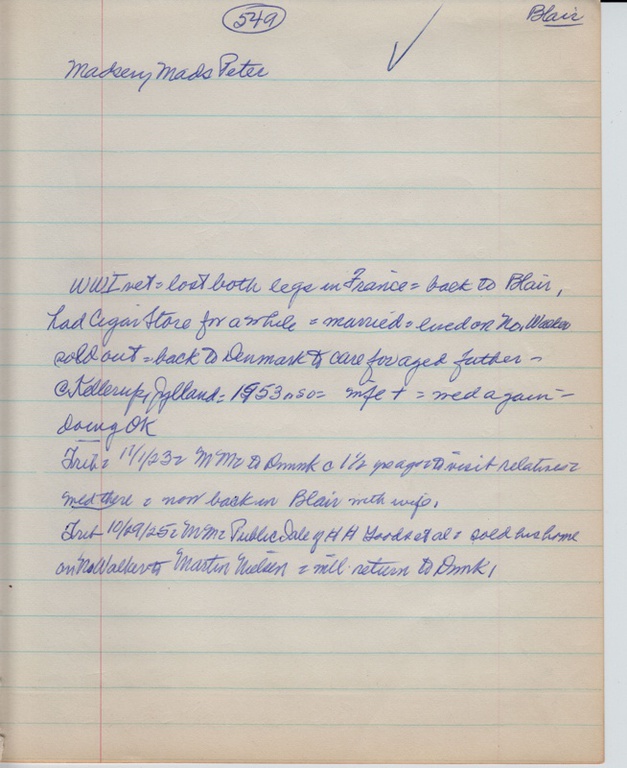 549
Blair
Madsen, Mads Peter
WWI vet = lost both legs in France = back to Blair,
had Cigar Store for a while = married = lived on No, Walker
sold out = back to Denmark to care for aged father -
c Kellerup, Jylland = 1953 n so = wife + = med again -
Doing OK
Trib = 11/1/23 = MM to Dmmk c 1 1/2 yrs ago to visit relatives =
med there = now back in Blair with wife.
Trib 10/29/25 = MM = Public Sale of HH Goods et al = sold his home
on No Walker to Martin Nielsen = will return to Dmmk,